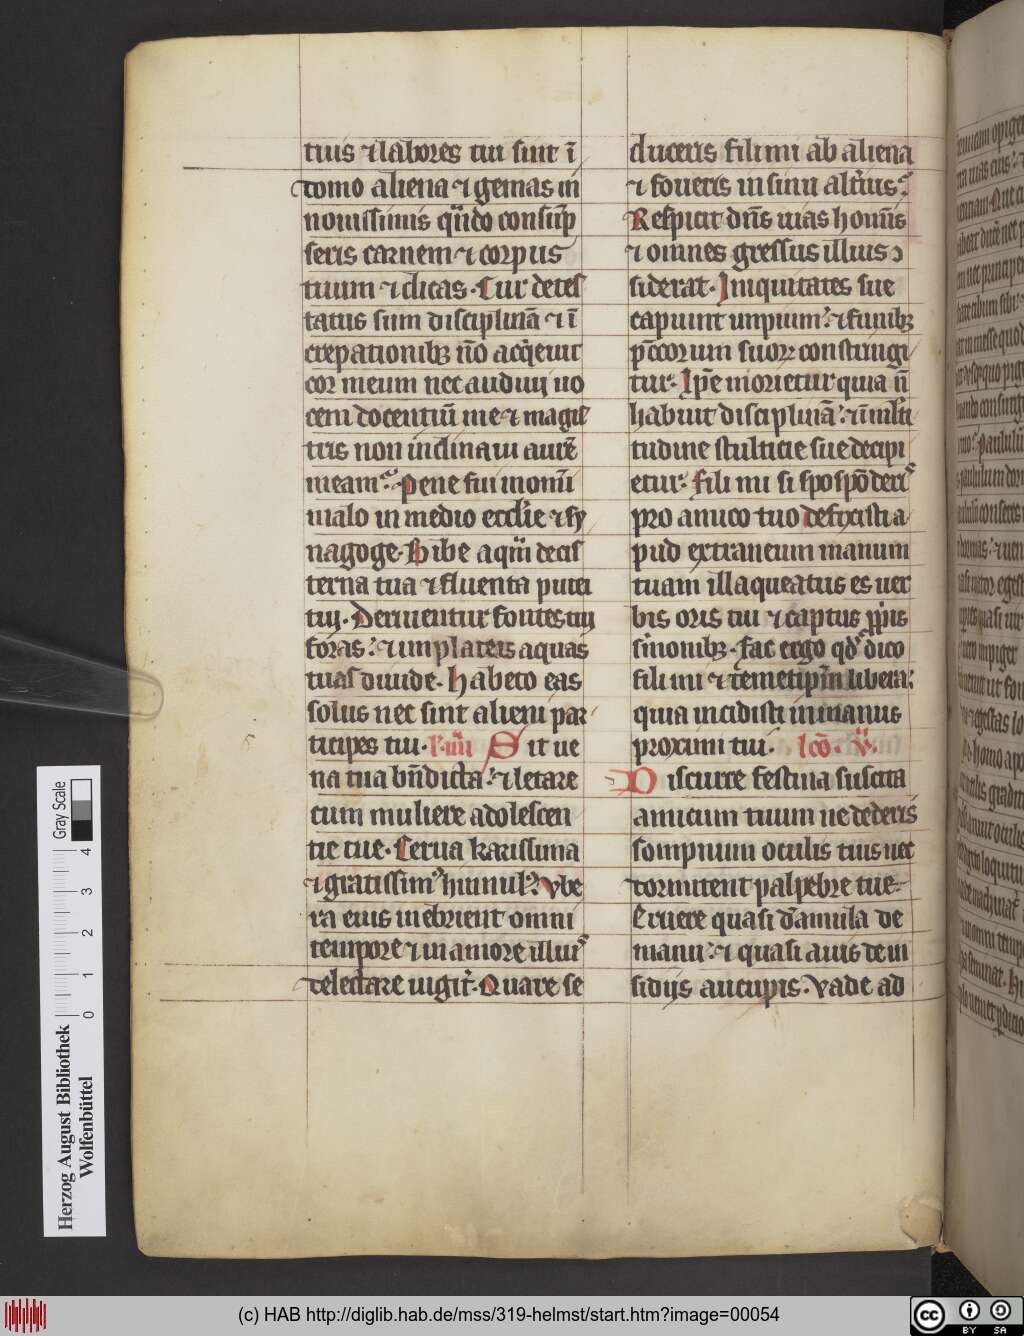 tuis ⁊ labores tui sint ī
domo aliena ⁊ gemas in
nouissimis qn̄do consūp
seris carnem ⁊ corpus
tuum ⁊ dicas. Cur detes
tatus sum disciplinā ⁊ ī
crepationibꝫ nō acq̄euit
cor meum nec audiuij uo
cem docentiū me ⁊ magis
tris non inclinaui aurē
meam. Pene fui in omī
malo in medio eccl̄ie ⁊ sy
nagoge. Bibe aquā de cis
terna tua ⁊ fluenta putei
tuj. Deriuentur fontes tuj
foras: ⁊ in plateis aquas
tuas diuide. Habeto eas
solus nec sint alieni par
ticipes tui. l. iiii Sit ue
na tua bn̄dicta: ⁊ letare
cum muliere adolescen
tie tue. Cerua karissima
⁊ gratissimꝰ hinnulꝰ: Vbe
ra eius inebrient omni
tempore ⁊ in amore illiuꝰ
delectare iugit̄. Quare se
duceris fili mi ab aliena
⁊ foueris in sinu alt̄ius.
Respicit dn̄s uias homīs
⁊ omnes gressus illius ↄ
siderat. Iniquitates sue
capiunt impium: ⁊ funibꝫ
pc̄corum suoꝝ constringi
tur. Ip̄e morietur quia n̄
habuit disciplinā: ⁊ ī mlti
tudine stulticie sue decipi
etur. Fili mi si spospōderis
pro amico tuo defixisti a
pud extraneum manum
tuam illaqueatus es uer
bis oris tui ⁊ captus ꝓpis
sm̄onibꝫ. Fac ergo qd̄ dico
fili mi ⁊ temetip̄m libera:
quia incidisti in manus
proximi tui. lc̄o. v.
Discurre festina suscita
amicum tuum ne dederis
sompnum oculis tuis nec
dormitent palpebre tue.
Eruere quasi dāmula de
manu: ⁊ quasi auis de in
sidijs aucupis. Vade ad
Gray Scale
0 1 2 3 4
Herzog August Bibliothek
Wolfenbüttel
(c) HAB http://diglib.hab.de/mss/319-helmst/start.htm?image=00054
cc BY SA